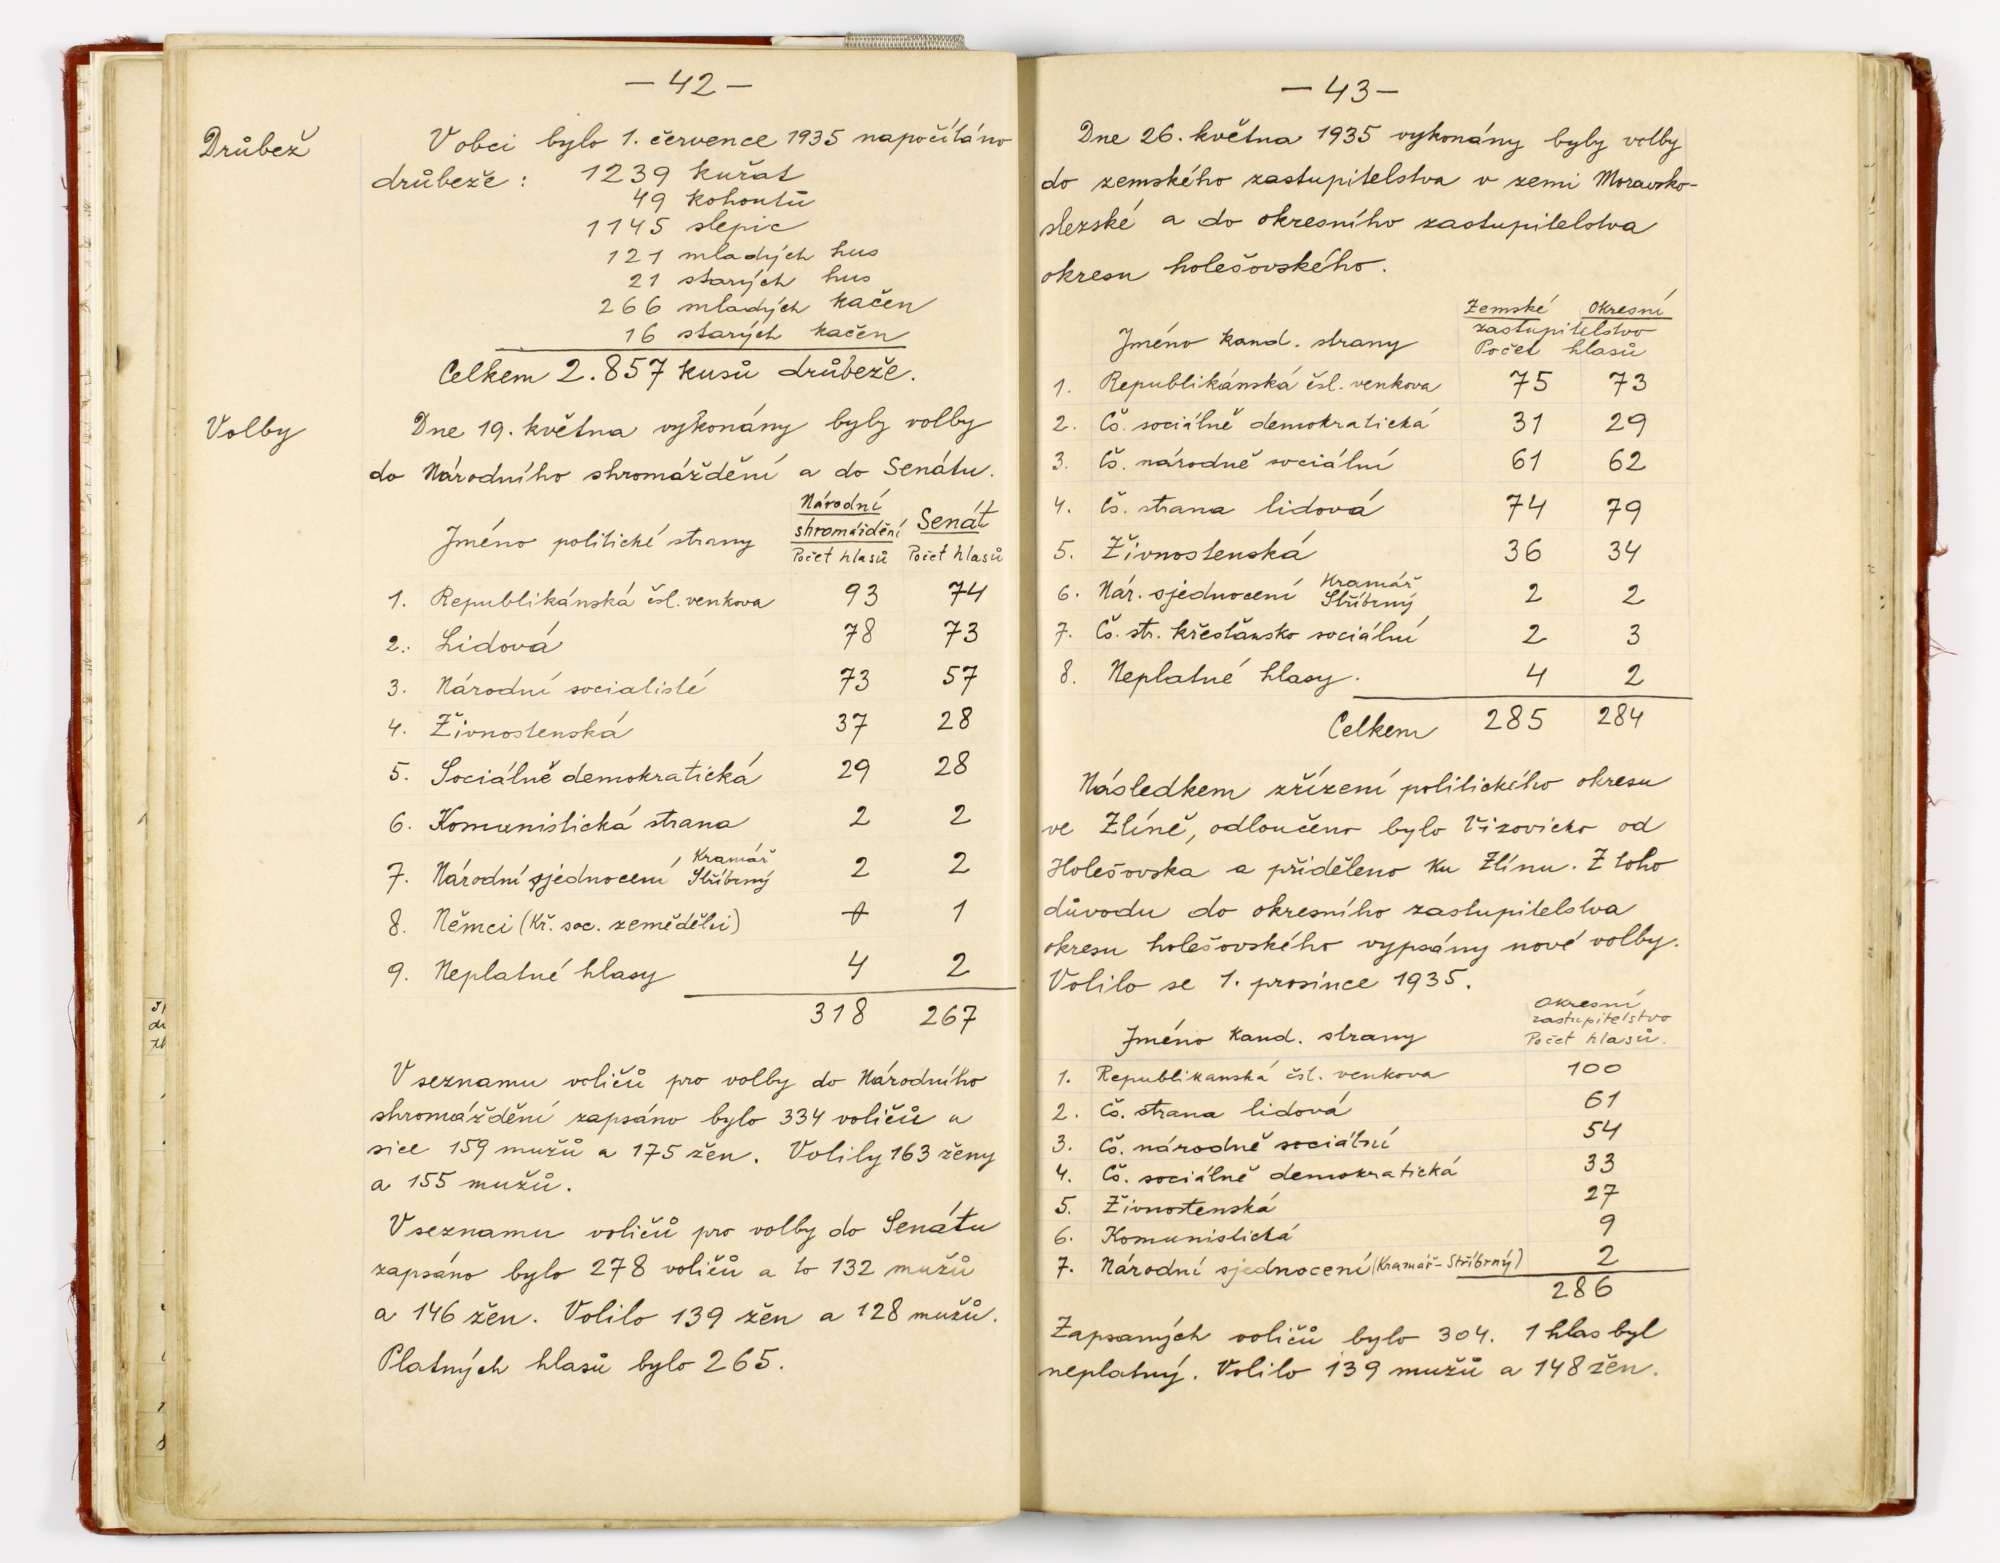 — 42 —
Drůbež
V obci bylo 1. července 1935 napočítáno
drůbeže : 1239 kuřat
49 kohoutů
1145 slepic
121 mladých hus
21 starých hus
266 mladých kačen
16 starých kačen
Celkem 2.857 kusů drůbeže.
Volby
Dne 19. května vykonány byly volby
do Národního shromáždění a do Senátu.
Jméno politické strany Národní shromáždění Počet hlasů Senát Počet hlasů
1. Republikánská čsl. venkova 93 74
2. Lidová 78 73
3. Národní socialisté 73 57
4. Živnostenská 37 28
5. Sociálně demokratická 29 28
6. Komunistická strana 2 2
7. Národní sjednocení Kramář Stříbrný 2 2
8. Němci (Kř. soc. zemědělci) 0 1
9. Neplatné hlasy 4 2
318 267
V seznamu voličů pro volby do Národního
shromáždění zapsáno bylo 334 voličů a
sice 159 mužů a 175 žen. Volily 163 ženy
a 155 mužů.
V seznamu voličů pro volby do Senátu
zapsáno bylo 278 voličů a to 132 mužů
a 146 žen. Volilo 139 žen a 128 mužů.
Platných hlasů bylo 265.
— 43 —
Dne 26. května 1935 vykonány byly volby
do zemského zastupitelstva v zemi Moravsko-
slezské a do okresního zastupitelstva
okresu holešovského.
Zemské Okresní
zastupitelstvo
Jméno kand. strany Počet hlasů
1. Republikánská čsl. venkova 75 73
2. Čs. sociálně demokratická 31 29
3. Čs. národně sociální 61 62
4. Čs. strana lidová 74 79
5. Živnostenská 36 34
6. Nár. sjednocení Kramář Stříbrný 2 2
7. Čs. str. křesťansko sociální 2 3
8. Neplatné hlasy. 4 2
Celkem 285 284
Následkem zřízení politického okresu
ve Zlíně, odloučeno bylo Vizovicko od
Holešovska a přiděleno ku Zlínu. Z toho
důvodu do okresního zastupitelstva
okresu holešovského vypsány nové volby.
Volilo se 1. prosince 1935.
Okresní
zastupitelstvo
Jméno kand. strany Počet hlasů.
1. Republikanská čsl. venkova 100
2. Čs. strana lidová 61
3. Čs. národně sociální 54
4. Čs. sociálně demokratická 33
5. Živnostenská 27
6. Komunistická 9
7. Národní sjednocení (Kramář-Stříbrný) 2
286
Zapsaných voličů bylo 304. 1 hlas byl
neplatný. Volilo 139 mužů a 148 žen.